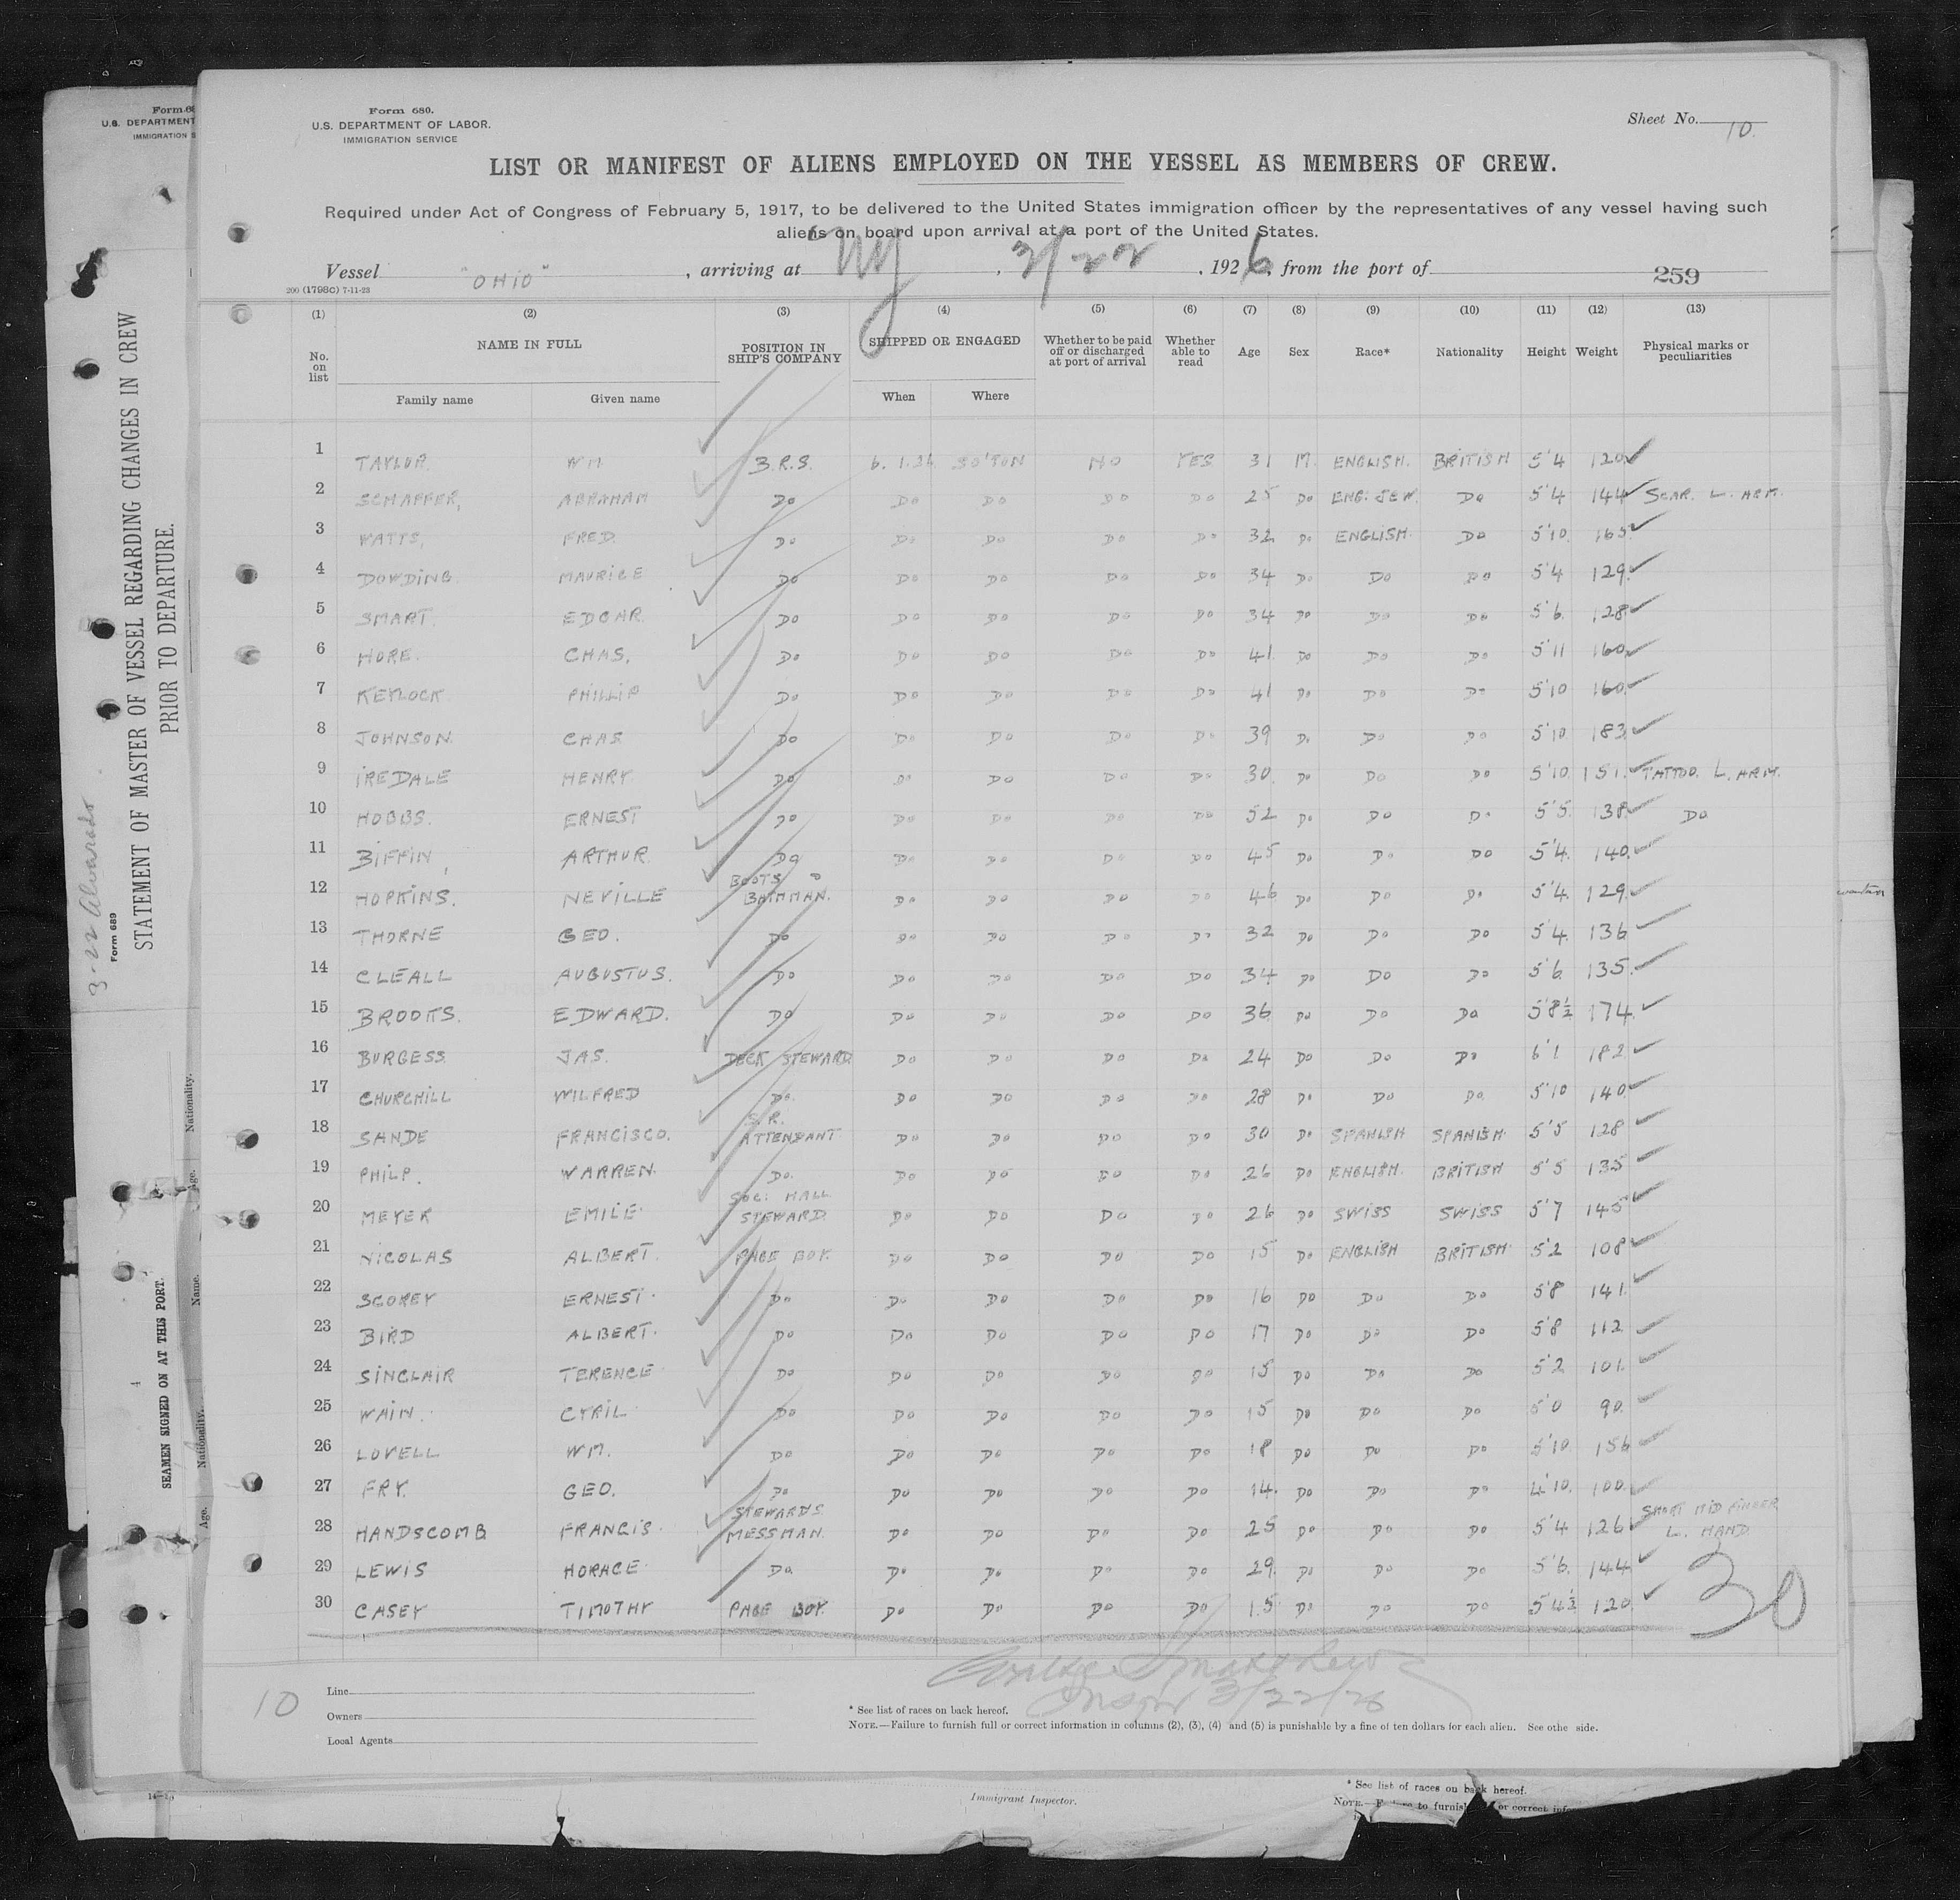 Form 680.
U.S. DEPARTMENT OF LABOR.
IMMIGRATION SERVICE
Sheet No. 10.
LIST OR MANIFEST OF ALIENS EMPLOYED ON THE VESSEL AS MEMBERS OF CREW.
Required under Act of Congress of February 5, 1917, to be delivered to the United States immigration officer by the representatives of any vessel having such
aliens on board upon arrival at a port of the United States.
Vessel "OHIO", arriving at NY, 3/22, 1926, from the port of
259
200 (1798c) 7-11-23
(1) (2) (3) (4) (5) (6) (7) (8) (9) (10) (11) (12) (13)
No. on list NAME IN FULL POSITION IN SHIP'S COMPANY SHIPPED OR ENGAGED Whether to be paid off or discharged at port of arrival Whether able to read Age Sex Race* Nationality Height Weight Physical marks or peculiarities
Family name Given name When Where
1 TAYLOR. WM B.R.S. 6.1.26 SO'TON NO YES 31 M. ENGLISH. BRITISH 5'4 120
2 SCHAFFER, ABRAHAM DO DO DO DO DO 25 DO ENG. JEW. DO 5'4 144 SCAR. L. ARM.
3 WATTS, FRED. DO DO DO DO DO 32 DO ENGLISH. DO 5'10 165
4 DOWDING MAURICE DO DO DO DO DO 34 DO DO DO 5'4 129
5 SMART. EDGAR. DO DO DO DO DO 34 DO DO DO 5'6 128
6 HORE. CHAS. DO DO DO DO DO 41 DO DO DO 5'11 160
7 KEYLOCK PHILLIP DO DO DO DO DO 41 DO DO DO 5'10 160
8 JOHNSON. CHAS DO DO DO DO DO 39 DO DO DO 5'10 183
9 IREDALE HENRY. DO DO DO DO DO 30. DO DO DO 5'10. 151. TATTOO. L. ARM.
10 HOBBS. ERNEST DO DO DO DO DO 52 DO DO DO 5'5. 138 DO
11 BIFFIN, ARTHUR. DO DO DO DO DO 45 DO DO DO 5'4. 140.
12 HOPKINS. NEVILLE BOOTS BATHMAN. DO DO DO DO 46 DO DO DO 5'4 129.
13 THORNE GEO. DO DO DO DO DO 32 DO DO DO 5'4. 136
14 CLEALL AUGUSTUS. DO DO DO DO DO 34 DO DO DO 5'6. 135.
15 BROOKS. EDWARD. DO DO DO DO DO 36 DO DO DO 5'8½ 174.
16 BURGESS JAS. DECK STEWARD DO DO DO DO 24 DO DO DO 6'1 182
17 CHURCHILL WILFRED DO. DO DO DO DO 28 DO DO DO 5'10 140.
18 SANDE FRANCISCO. S.R. ATTENDANT DO DO DO DO 30 DO SPANISH SPANISH 5'5 128
19 PHILP. WARREN. DO. DO DO DO DO 26 DO ENGLISH. BRITISH 5'5 135
20 MEYER EMILE SOC: HALL STEWARD DO DO DO DO 26 DO SWISS SWISS 5'7 145
21 NICOLAS ALBERT. PAGE BOY. DO DO DO DO 15 DO ENGLISH BRITISH 5'2 108
22 SCOREY ERNEST. DO DO DO DO DO 16 DO DO DO 5'8 141.
23 BIRD ALBERT. DO DO DO DO DO 17 DO DO DO 5'8 112
24 SINCLAIR TERENCE DO DO DO DO DO 15 DO DO DO 5'2 101.
25 WAIN. CYRIL DO DO DO DO DO 15 DO DO DO 5'0 90.
26 LOVELL WM. DO DO DO DO DO 18 DO DO DO 5'10. 156
27 FRY. GEO. DO DO DO DO DO 14. DO DO DO 4'10. 100.
28 HANDSCOMB FRANCIS. STEWARDS MESSMAN. DO DO DO DO 25 DO DO DO 5'4 126 SHORT MID FINGER L. HAND
29 LEWIS HORACE DO DO DO DO DO 29. DO DO DO 5'6. 144
30 CASEY TIMOTHY PAGE BOY. DO DO DO DO 15 DO DO DO 5'4½ 120.
30
3/22/26
10
Line
Owners
Local Agents
* See list of races on back hereof.
NOTE.—Failure to furnish full or correct information in columns (2), (3), (4) and (5) is punishable by a fine of ten dollars for each alien. See othe side.
Immigrant Inspector.
* See list of races on back hereof.
to furnish or correct
U.S. DEPARTMENT
IMMIGRATION S
3-22 Alvarado
Form 689
STATEMENT OF MASTER OF VESSEL REGARDING CHANGES IN CREW
PRIOR TO DEPARTURE.
SEAMEN SIGNED ON AT THIS PORT.
Nationality.
Age.
Name.
Nationality.
Age.